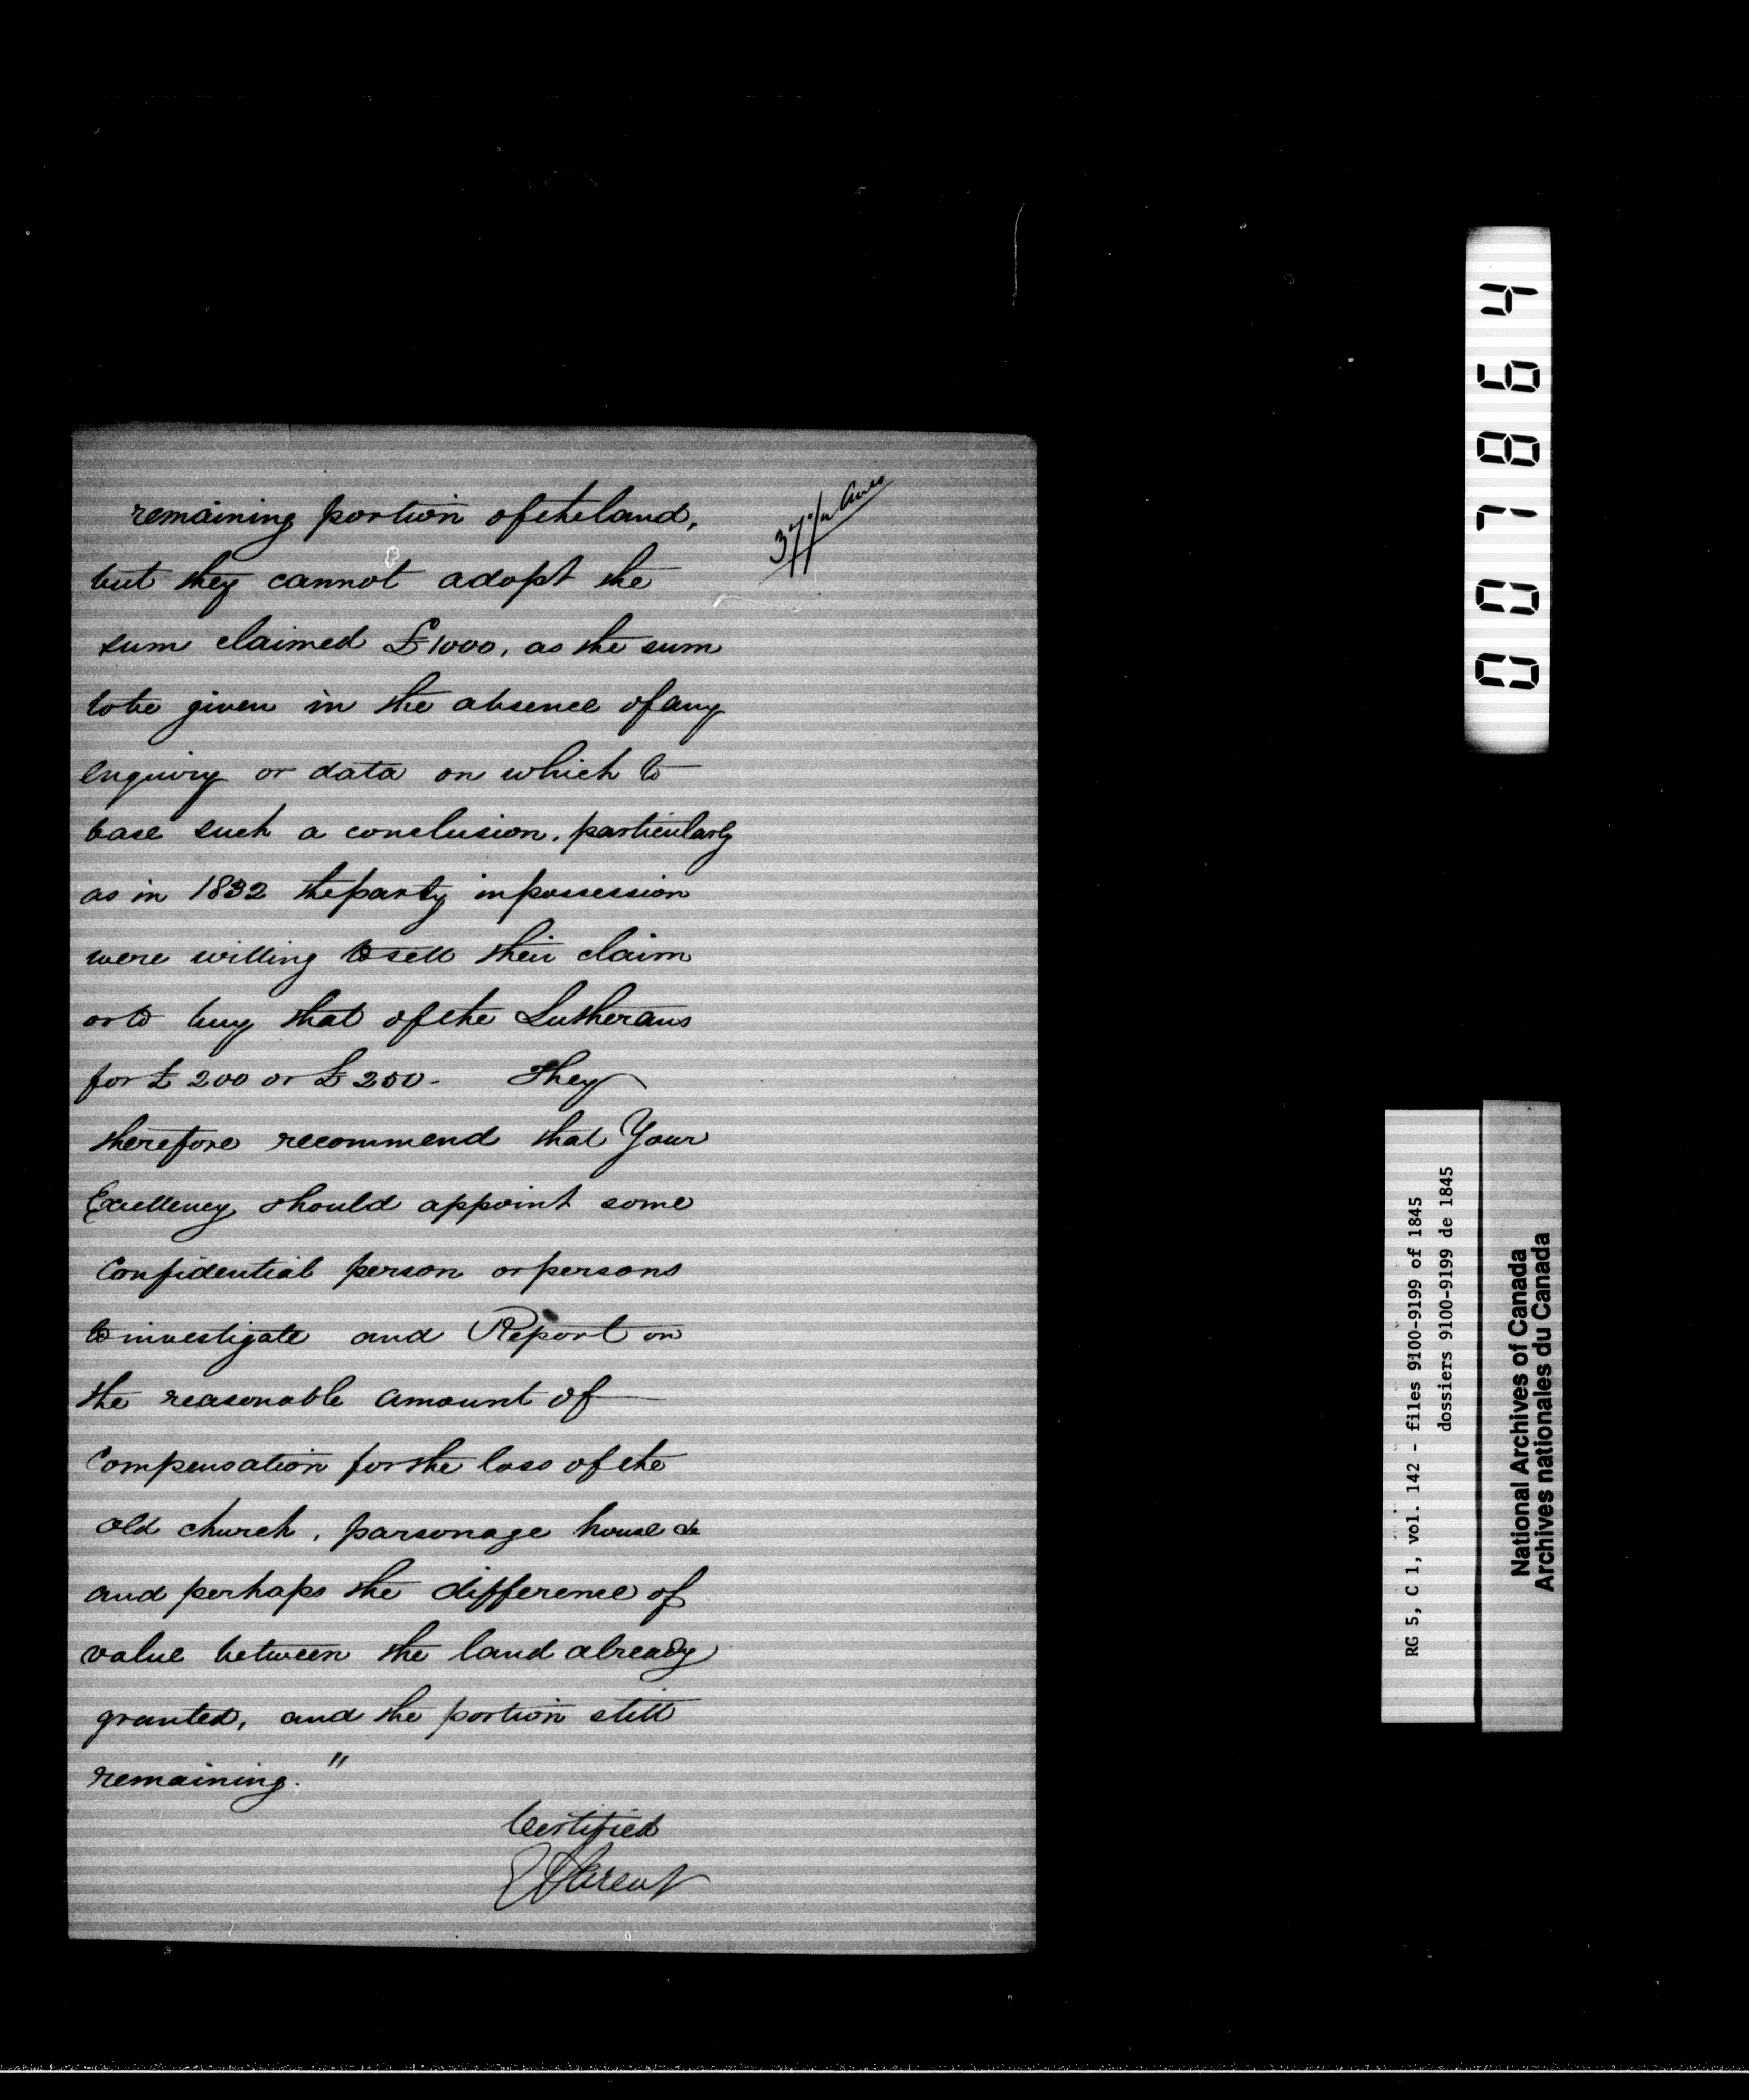 remaining portion of the land,
but they cannot adopt the
sum claimed £1000, as the sum
to be given in the absence of any
enquiry or data on which to
base such a conclusion, particularly
as in 1832 the party in possession
were willing to sell their claim
or to buy that of the Lutherans
for £200 or £250 - They
therefore recommend that Your
Excellency should appoint some
Confidential person or persons
to investigate and Report on
the reasonable amount of
Compensation for the loss of the
old church, parsonage house &c
and perhaps the difference of
value between the land already
granted, and the portion still
remaining."
Certified
E Parent
007864
RG 5, C 1, vol. 142 - files 9100-9199 of 1845
dossiers 9100-9199 de 1845
National Archives of Canada
Archives nationales du Canada